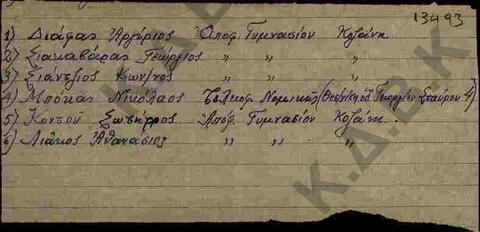 13493
1) Διάφας Αργύριος Αποφ. Γυμνασίου Κοζάνη
2) Σιακαβάρας Γεώργιος " " "
3) Σιάντζιος Κων/νος " " "
4) Μπόκας Νικόλαος Τελειοφ. Νομικής (Θεσ/νίκης οδ. Γεωργίου Σταύρου 4)
5) Κοντού Σωτήριος Αποφ. Γυμνασίου Κοζάνη.
6) Λιάκος Αθανάσιος " " "
Κ.Δ.Β.Κ